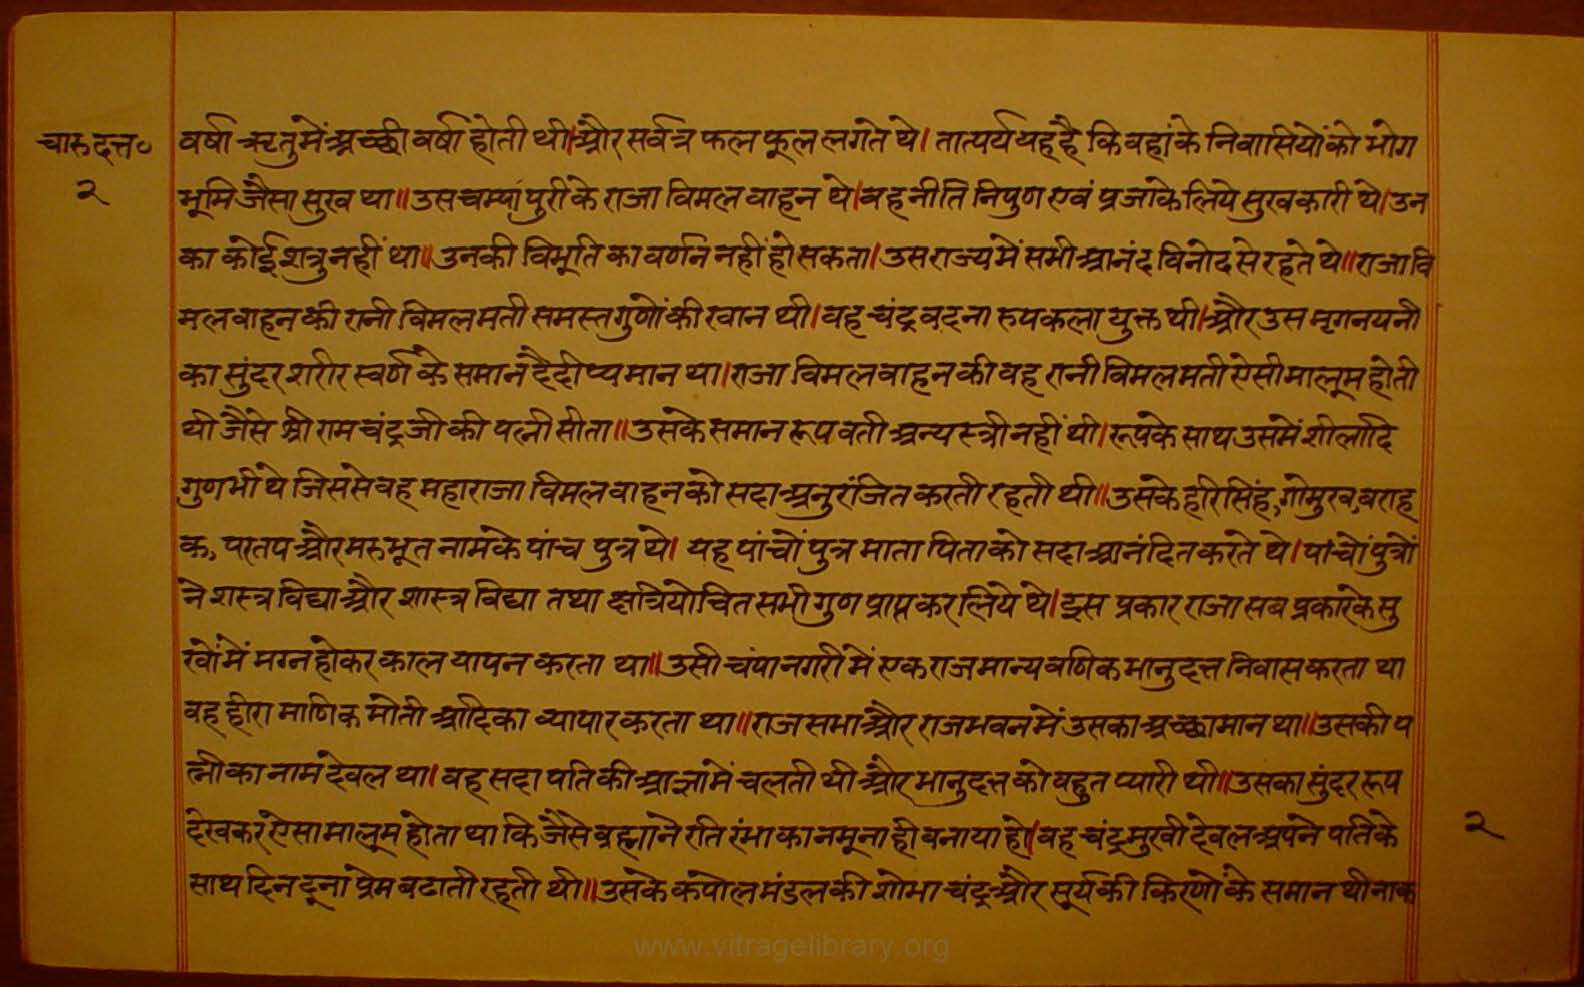 चारुदत्त०
२
वर्षा ऋतु में अच्छी वर्षा होती थी। और सर्वत्र फल फूल लगते थे। तात्पर्य यह है कि वहां के निवासियों को भोग
भूमि जैसा सुख था॥ उस चम्पापुरी के राजा विमल वाहन थे। वह नीति निपुण एवं प्रजा के लिये सुखकारी थे। उन
का कोई शत्रु नहीं था॥ उनकी विभूति का वर्णन नहीं हो सकता। उस राज्य में सभी आनंद विनोद से रहते थे॥ राजा वि
मल वाहन की रानी विमलमती समस्त गुणों की खान थी। वह चंद्र वदना रुपकला युक्त थी। और उस मृगनयनी
का सुंदर शरीर स्वर्ण के समान दैदीप्यमान था। राजा विमलवाहन की वह रानी विमलमती ऐसी मालूम होती
थी जैसे श्री रामचंद्रजी की पत्नी सीता॥ उसके समान रूपवती अन्य स्त्री नहीं थी। रूपके साथ उसमें शीलादि
गुण भी थे जिससे वह महाराजा विमलवाहन को सदा अनुरंजित करती रहती थी॥ उसके हरिसिंह, गोमुख, वराह
क, परतप और मरुभूत नामके पांच पुत्र थे। यह पांचों पुत्र माता पिता को सदा आनंदित करते थे। पांचों पुत्रों
ने शस्त्र विद्या और शास्त्र विद्या तथा क्षत्रियोचित सभी गुण प्राप्त कर लिये थे। इस प्रकार राजा सब प्रकारके सु
खों में मग्न होकर काल यापन करता था॥ उसी चंपा नगरी में एक राजमान्य वणिक भानुदत्त निवास करता था
वह हीरा माणिक मोती आदिका व्यापार करता था॥ राज सभा और राजभवन में उसका अच्छा मान था॥ उसकी प
त्नी का नाम देवल था। वह सदा पति की आज्ञा में चलती थी और भानुदत्त को बहुत प्यारी थी॥ उसका सुंदर रूप
देखकर ऐसा मालूम होता था कि जैसे ब्रह्मा ने रति रंभा का नमूना ही बनाया हो। वह चंद्रमुखी देवल अपने पति के
साथ दिन दूना प्रेम बढाती रहती थी॥ उसके कपोल मंडल की शोभा चंद्र और सूर्य की किरणों के समान थी नाक
२
www.vitragelibrary.org